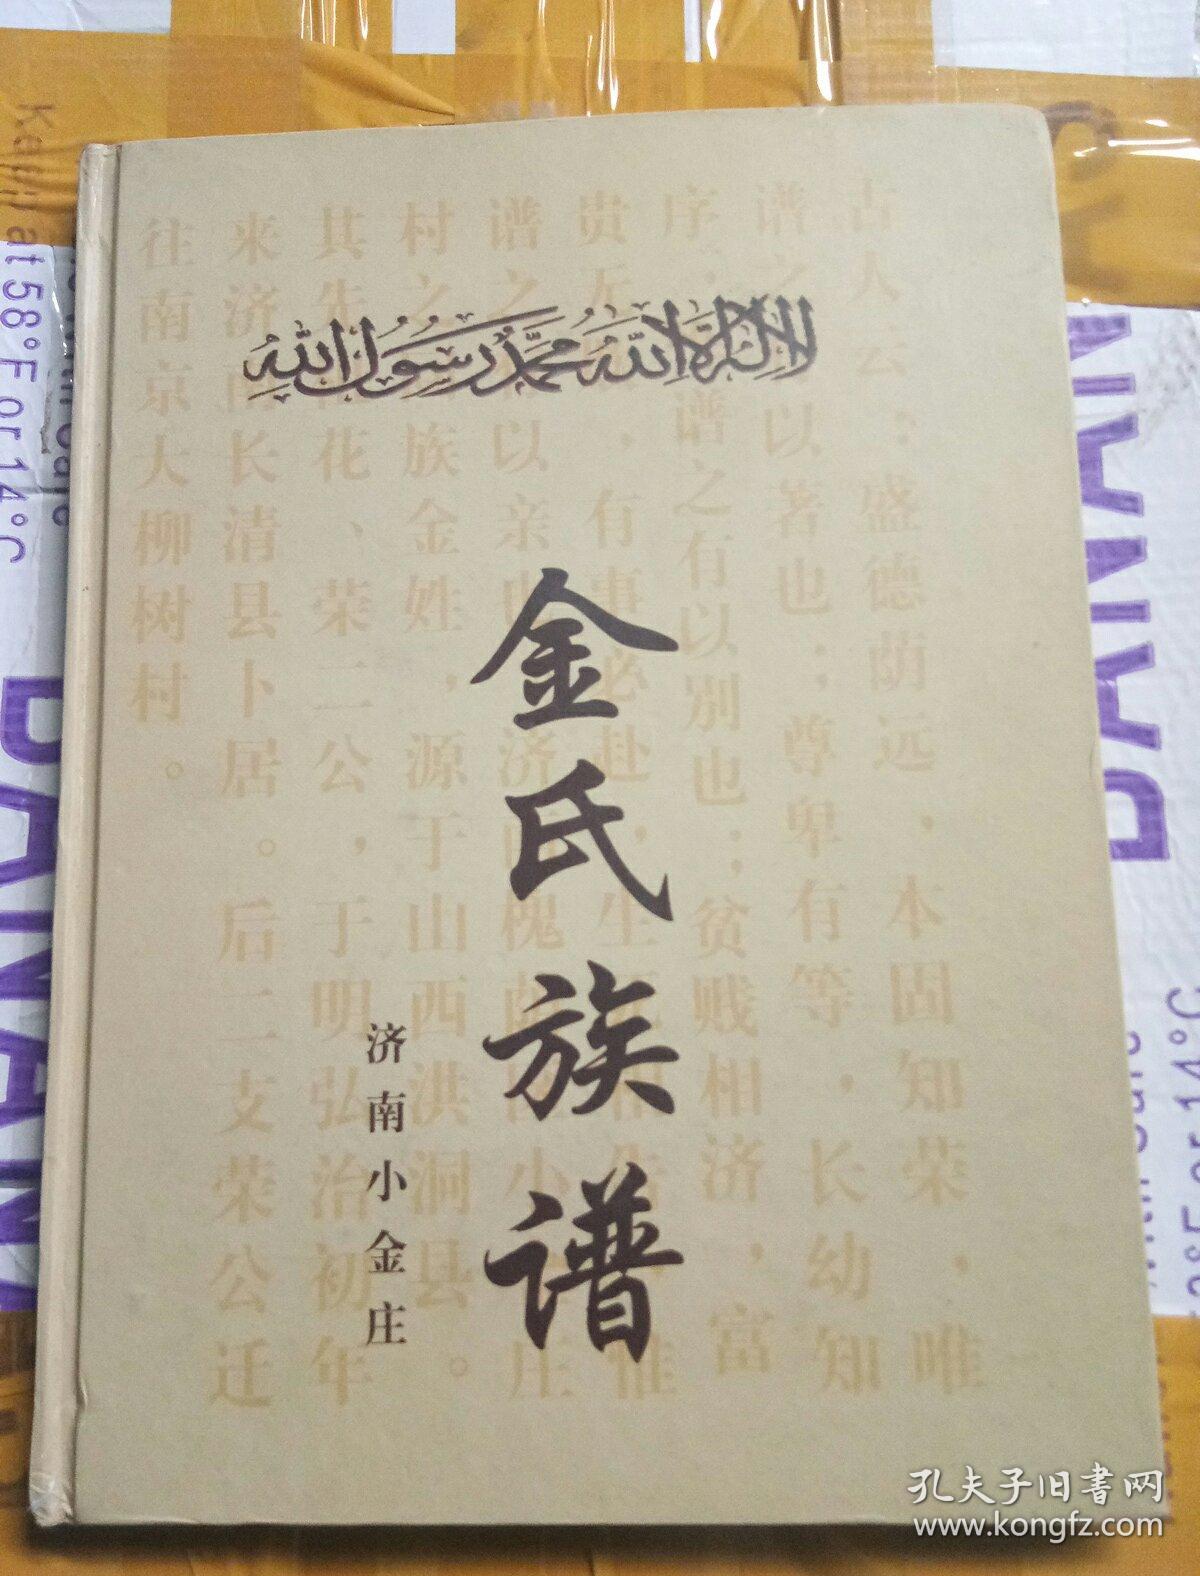 لا إله إلا الله محمد رسول الله
金氏族谱
济南小金庄
古人云：盛德荫远，本固知荣，唯
谱之以著也；尊卑有等，长幼知
序，谱之有以别也；贫贱相济，富
贵无，有事必赴，生
谱之以亲也济南槐荫小庄
村之族金姓，源于山西洪洞县。
其先花、荣二公，于明弘治初年
来济南长清县卜居。后二支荣公迁
往南京大柳树村。
Keep at 58°F or 14°C
BANANA
BANANA
58°F or 14°C
孔夫子旧书网
www.kongfz.com